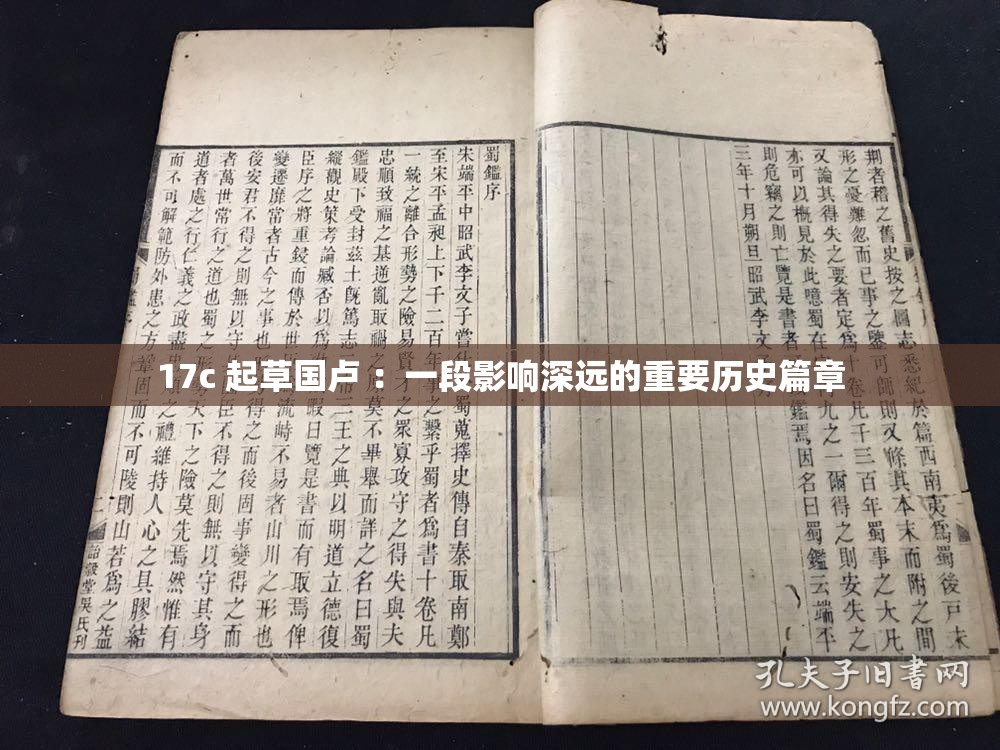 荆者稽之舊史按之圖志悉紀於篇西南夷爲蜀後戸末
形之憂難忽而已事之鑒可師則又條其本末而附之間
又論其得失之要者定爲十卷凡千三百年蜀事之大凡
亦可以概見於此噫蜀在九之一爾得之則安失之
則危竊之則亡覽是書者鑑焉因名曰蜀鑑云端平
三年十月朔旦昭武李文
蜀鑑序
宋端平中昭武李文子嘗仕蜀蒐擇史傳自秦取南鄭
至宋平孟昶上下千二百年事之繫乎蜀者爲書十卷凡
一統之離合形勢之險易賢才之眾寡攻守之得失與夫
忠順致福之基逆亂取禍之莫不畢舉而詳之名曰蜀
鑑殿下受封茲土旣篤志二三王之典以明道立德復
縱觀史策考論臧否以爲暇日覽是書而有取焉俾
臣序之將重鋟而傳於世流峙不易者山川之形也
變遷靡常者古今之事也得之而後固事變得之而
後安君不得之則無以守臣不得之則無以守其身
者萬世常行之道也蜀之形天下之險莫先焉然惟有
道者處之行仁義之政盡忠之禮維持人心之具膠結
而不可解範防外患之方鞏固而不可陵則山若爲之益
詒穀堂吳氏刊
17c 起草国卢 ：一段影响深远的重要历史篇章
孔夫子旧书网
www.kongfz.com